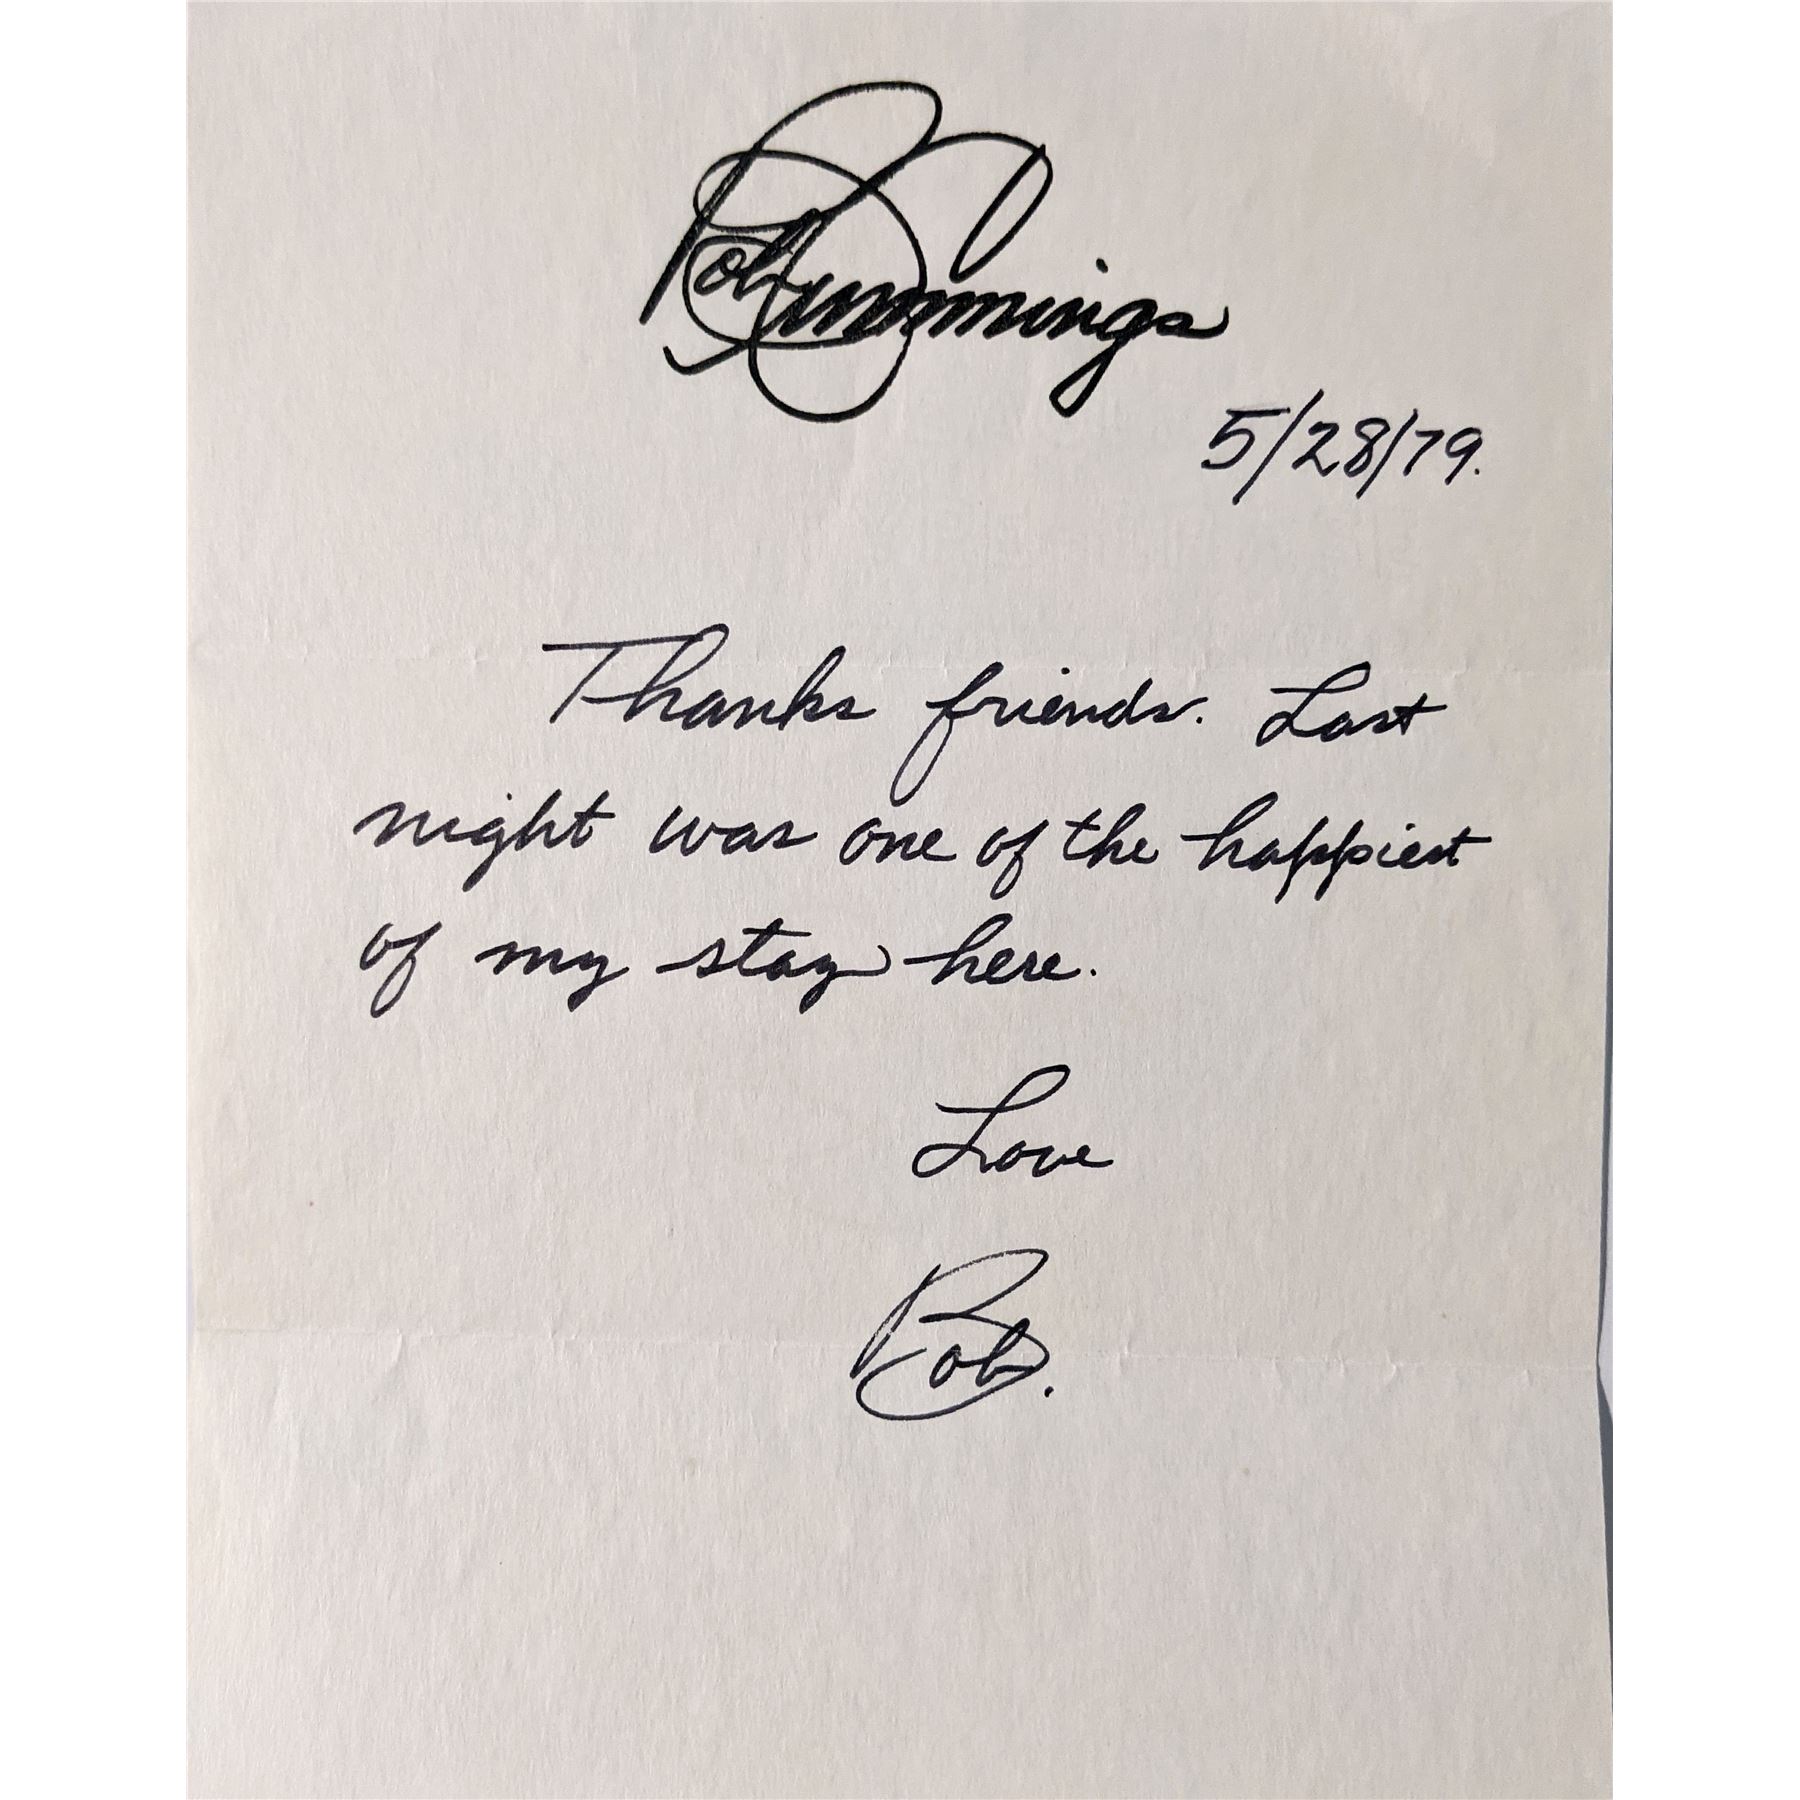 Bob Cummings
5/28/79.
Thanks friends. Last
night was one of the happiest
of my stay here.
Love
Bob.